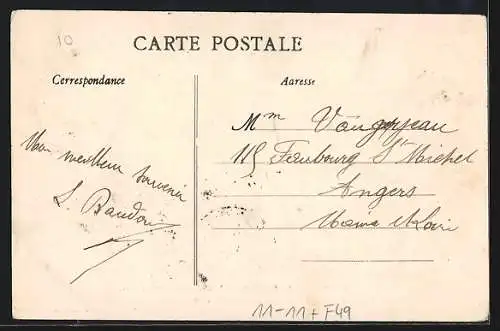 10
CARTE POSTALE
Correspondance
Adresse
Mon meilleur souvenir
L. Baudou
Mm
115 Faubourg St Michel
Angers
Maine et Loire
11-11+F49